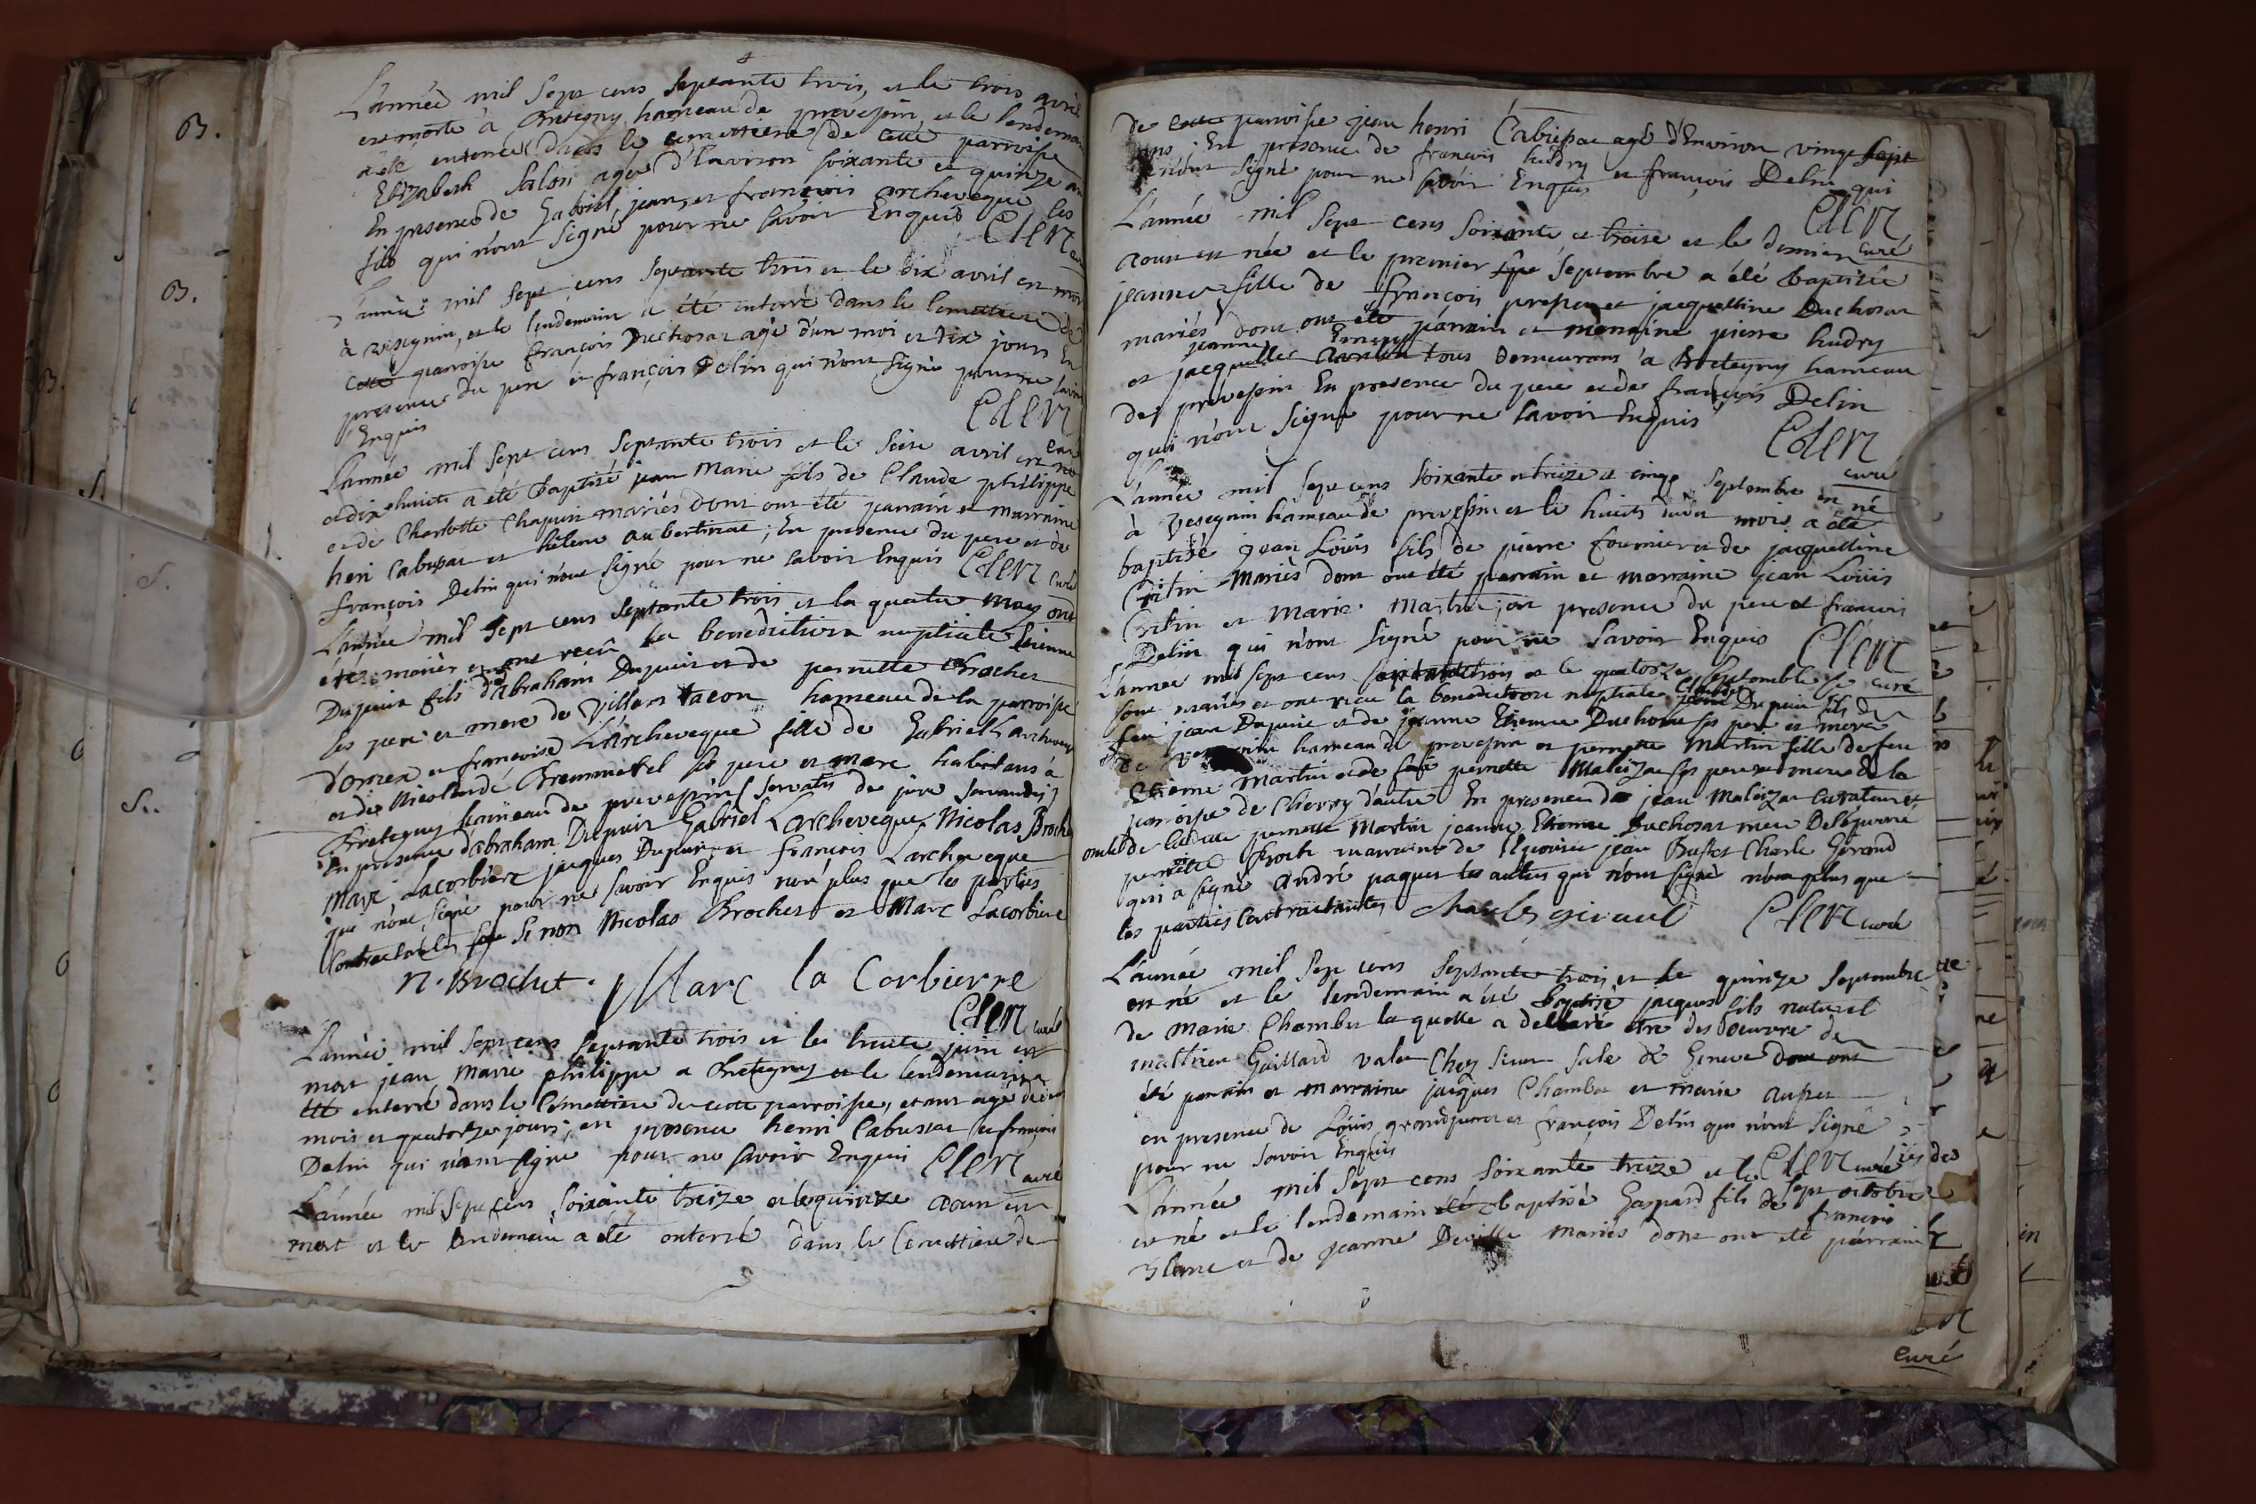 L'année mil sept cens septante trois, et le trois avril
est morte à Bretegny hameau de prevesin, et le lendemain
a été enterrée dans le cemettiere de cette parroisse
Elizabeth Salon agée d'Environ soixante et quinze ans
En presence de Gabriel, jean, et françois archeveque les
fils qui n'ont signé pour ne savoir Enquis Clerc curé
L'année mil sept cens septante trois et le dix avril est mort
à vesegnin, et le lendemain a été enterré dans le cemettiere de
cette parroisse françois Duchosat agé d'un moi et dix jours En
presence du pere et françois Delin qui n'ont signé pour ne savoir
Enquis Clerc curé
L'année mil sept cens septante trois et le seize avril est né
et dix huict a été baptisé jean Marie fils de Claude philippe
et de Charlotte Chapuis mariés dont ont été parrain et marraine
heni Cabussat et hélene aubertinat; En presence du pere et de
françois Delin qui n'ont signé pour ne savoir Enquis Clerc curé
L'année mil sept cens septante trois et la quatre may ont
étés mariés et ont reçu la benediction nuptiale Etienne
Dupuis fils d'abraham Dupuis et de pernette Brochet
ses pere et mere de Villars tacon hameau de la parroisse
d'ornex et françoise L'archeveque fille de Gabriel Larcheveque
et de Nicolarde ses pere et mere habitans à
Bretegny hameau de prevessin
En presence d'abraham Dupuis Gabriel Larcheveque, Nicolas Brochet
Marc Lacorbiere jacques Dupuis et françois Larcheveque
qui n'ont signé pour ne savoir Enquis non plus que les parties
Contractantes si non Nicolas Brochet et Marc Lacorbiere
N. Brochet. Marc la Corbierre
Clerc curé
L'année mil sept cens septante trois et le trente juin est
mort jean Marie philippe a Bretegny et le lendemain a
été enterré dans le Cemettiere de cette parroisse, etant agé de deux
mois et quatorze jours; en presence henri Cabussat et françois
Delin qui n'ont signé pour ne savoir Enquis Clerc curé
L'année mil sept cens soixante treize et le quinze aoust est
mort et le lendemain a été enterré dans le Cemettiere de
de cette parroisse jean henri Cabussat agé d'Environ vingt sept
ans. En presence de françois hudry et françois Delin qui
n'ont signé pour ne savoir Enquis Clerc curé
L'année mil sept cens soixante et treize et le dernier
aout est née et le premier septembre a été baptisée
jeanne fille de françois et jacquettine Duchosat
mariés dont ont été parrain et marraine pierre hudry
et jacquette jeanne tous Demeurans à Bretegny hameau
de prevesin En presence du pere et de françois Delin
qui n'ont signé pour ne savoir Enquis Clerc
curé
L'année mil sept cens soixante et treize et cinq septembre est né
à Vesegnin hameau de prevessin et le huict dudit mois a été
baptisé jean Loüis fils de pierre fournier et de jacquettine
Critin mariés dont ont été parrain et marraine jean Loüis
Critin et Marie Martin; en presence du pere et françois
Delin qui n'ont signé pour ne savoir Enquis Clerc
curé
L'année mil sept cens septante trois et le quatorze septembre se
sont mariés et ont reçu la benediction nuptiale Claude Dupuis fils de
feu jean Dupuis et de jeanne Etienne Duchosat ses pere et mere
de vesegnin hameau de prevessin et pernette Martin fille de feu
Etienne Martin et de feüe pernette Maloizat ses pere et mere de la
parroisse de Chevry d'autre En presence de jean Maloizat Curateur et
oncle de ladite pernette Martin jeanne Etienne Duchosat mere De l'epoux
pernette marraine de l'epouse jean Charle Girand
qui a signé andré paquet les autres qui n'ont signé non plus que
les parties Contractantes Charles giraud Clerc curé
L'année mil sept cens septante trois et le quinze septembre
est né et le lendemain a été baptisé jacques fils naturel
de Marie Chambet laquelle a declaré etre des oeuvre de
matthieu Gaillard valet Chez sieur de Geneve dont ont
été parrain et marraine jacques Chambet et marie
en presence de Loüis et françois Delin qui n'ont signé
pour ne savoir Enquis Clerc curé
L'année mil sept cens soixante treize et le sept octobre
est né et le lendemain été baptisé Gaspard fils de françois
et de jeanne mariés dont ont été parrain
curé